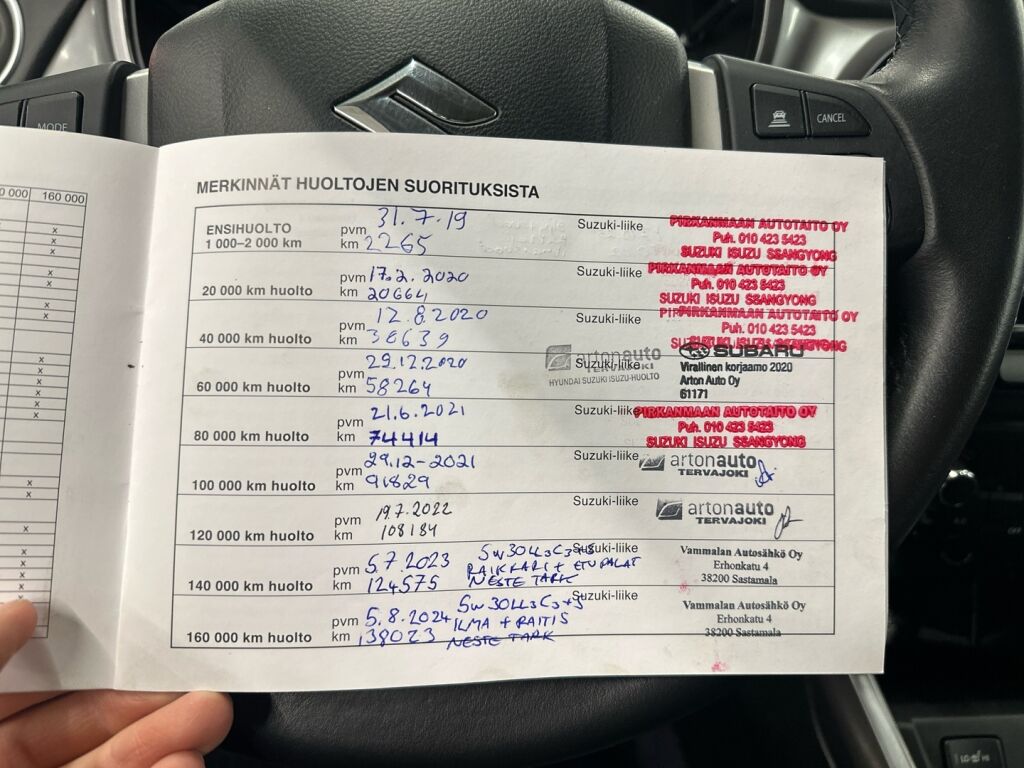 MODE
CANCEL
0 000 160 000
MERKINNÄT HUOLTOJEN SUORITUKSISTA
ENSIHUOLTO
1 000–2 000 km
pvm 31.7.19
km 2265
Suzuki-liike
PIRKANMAAN AUTOTAITO OY
Puh. 010 423 5423
SUZUKI ISUZU SSANGYONG
20 000 km huolto
pvm 17.2.2020
km 20664
Suzuki-liike
PIRKANMAAN AUTOTAITO OY
Puh. 010 423 5423
SUZUKI ISUZU SSANGYONG
40 000 km huolto
pvm 12.8.2020
km 38639
Suzuki-liike
PIRKANMAAN AUTOTAITO OY
Puh. 010 423 5423
SUZUKI ISUZU SSANGYONG
60 000 km huolto
pvm 29.12.2020
km 58264
Suzuki-liike
artonauto
TERVAJOKI
HYUNDAI SUZUKI ISUZU-HUOLTO
SUBARU
Virallinen korjaamo 2020
Arton Auto Oy
61171
80 000 km huolto
pvm 21.6.2021
km 74414
Suzuki-liike
PIRKANMAAN AUTOTAITO OY
Puh. 010 423 5423
SUZUKI ISUZU SSANGYONG
100 000 km huolto
pvm 29.12-2021
km 91829
Suzuki-liike
artonauto
TERVAJOKI
120 000 km huolto
pvm 19.7.2022
km 108184
Suzuki-liike
artonauto
TERVAJOKI
140 000 km huolto
pvm 5.7.2023
km 124575
Suzuki-liike
5W30LL3C3+S
RAIKKARI + ETUPALAT
NESTE TARK
Vammalan Autosähkö Oy
Erhonkatu 4
38200 Sastamala
160 000 km huolto
pvm 5.8.2024
km 138023
Suzuki-liike
5W30LL3C3+S
ILMA + RAITIS
NESTE TARK
Vammalan Autosähkö Oy
Erhonkatu 4
38200 Sastamala